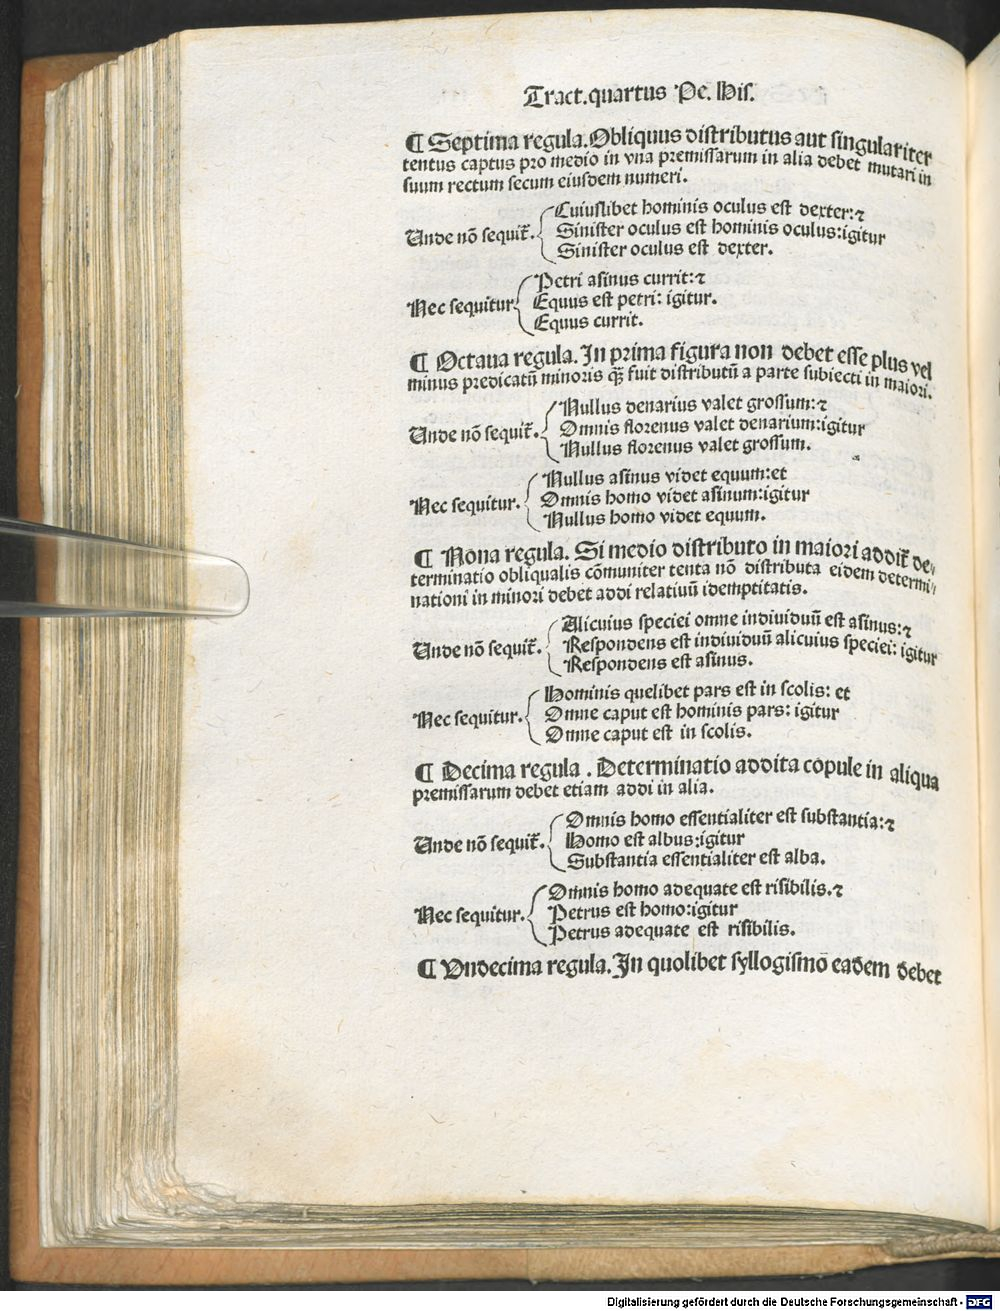 Tract.quartus Pe. His.
¶ Septima regula.Obliquus distributus aut singulariter
tentus captus pro medio in vna premissarum in alia debet mutari in
suum rectum secum eiusdem numeri.
Cuiuslibet hominis oculus est dexter:⁊
Unde nō sequit̄. Sinister oculus est hominis oculus:igitur
Sinister oculus est dexter.
Petri asinus currit:⁊
Nec sequitur Equus est petri: igitur.
Equus currit.
¶ Octaua regula.In prima figura non debet esse plus vel
minus predicatū minoris qꝫ fuit distributū a parte subiecti in maiori.
Nullus denarius valet grossum:⁊
Unde nō sequit̄. Omnis florenus valet denarium:igitur
Nullus florenus valet grossum.
Nullus asinus videt equum:et
Nec sequitur. Omnis homo videt asinum:igitur
Nullus homo videt equum.
¶ Nona regula. Si medio distributo in maiori addit̄ de⸗
terminatio obliqualis cōmuniter tenta nō distributa eidem determi⸗
nationi in minori debet addi relatiuū idemptitatis.
Alicuius speciei omne indiuiduū est asinus:⁊
Unde nō sequit̄. Respondens est indiuiduū alicuius speciei: igitur
Respondens est asinus.
Hominis quelibet pars est in scolis: et
Nec sequitur. Omne caput est hominis pars: igitur
Omne caput est in scolis.
¶ Decima regula . Determinatio addita copule in aliqua
premissarum debet etiam addi in alia.
Omnis homo essentialiter est substantia:⁊
Unde nō sequit̄. Homo est albus:igitur
Substantia essentialiter est alba.
Omnis homo adequate est risibilis.⁊
Nec sequitur. Petrus est homo:igitur
Petrus adequate est risibilis.
¶ Vndecima regula.In quolibet syllogismo eadem debet
Digitalisierung gefördert durch die Deutsche Forschungsgemeinschaft - DFG